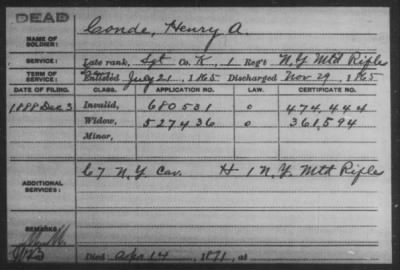 DEAD
NAME OF SOLDIER: Conde, Henry A.
SERVICE: Late rank, Sgt Co. K, 1 Reg't N.Y. Mtd Rifle
TERM OF SERVICE: Enlisted July 21, 1865 Discharged Nov 29, 1865
DATE OF FILING. CLASS. APPLICATION NO. LAW. CERTIFICATE NO.
1888 Dec 3 Invalid, 680531 o 474,444
Widow, 527436 o 361,594
Minor,
ADDITIONAL SERVICES: C 7 N.Y. Cav. H 1 N.Y. Mtd Rifle
REMARKS:
Died Apr 14, 1891, at